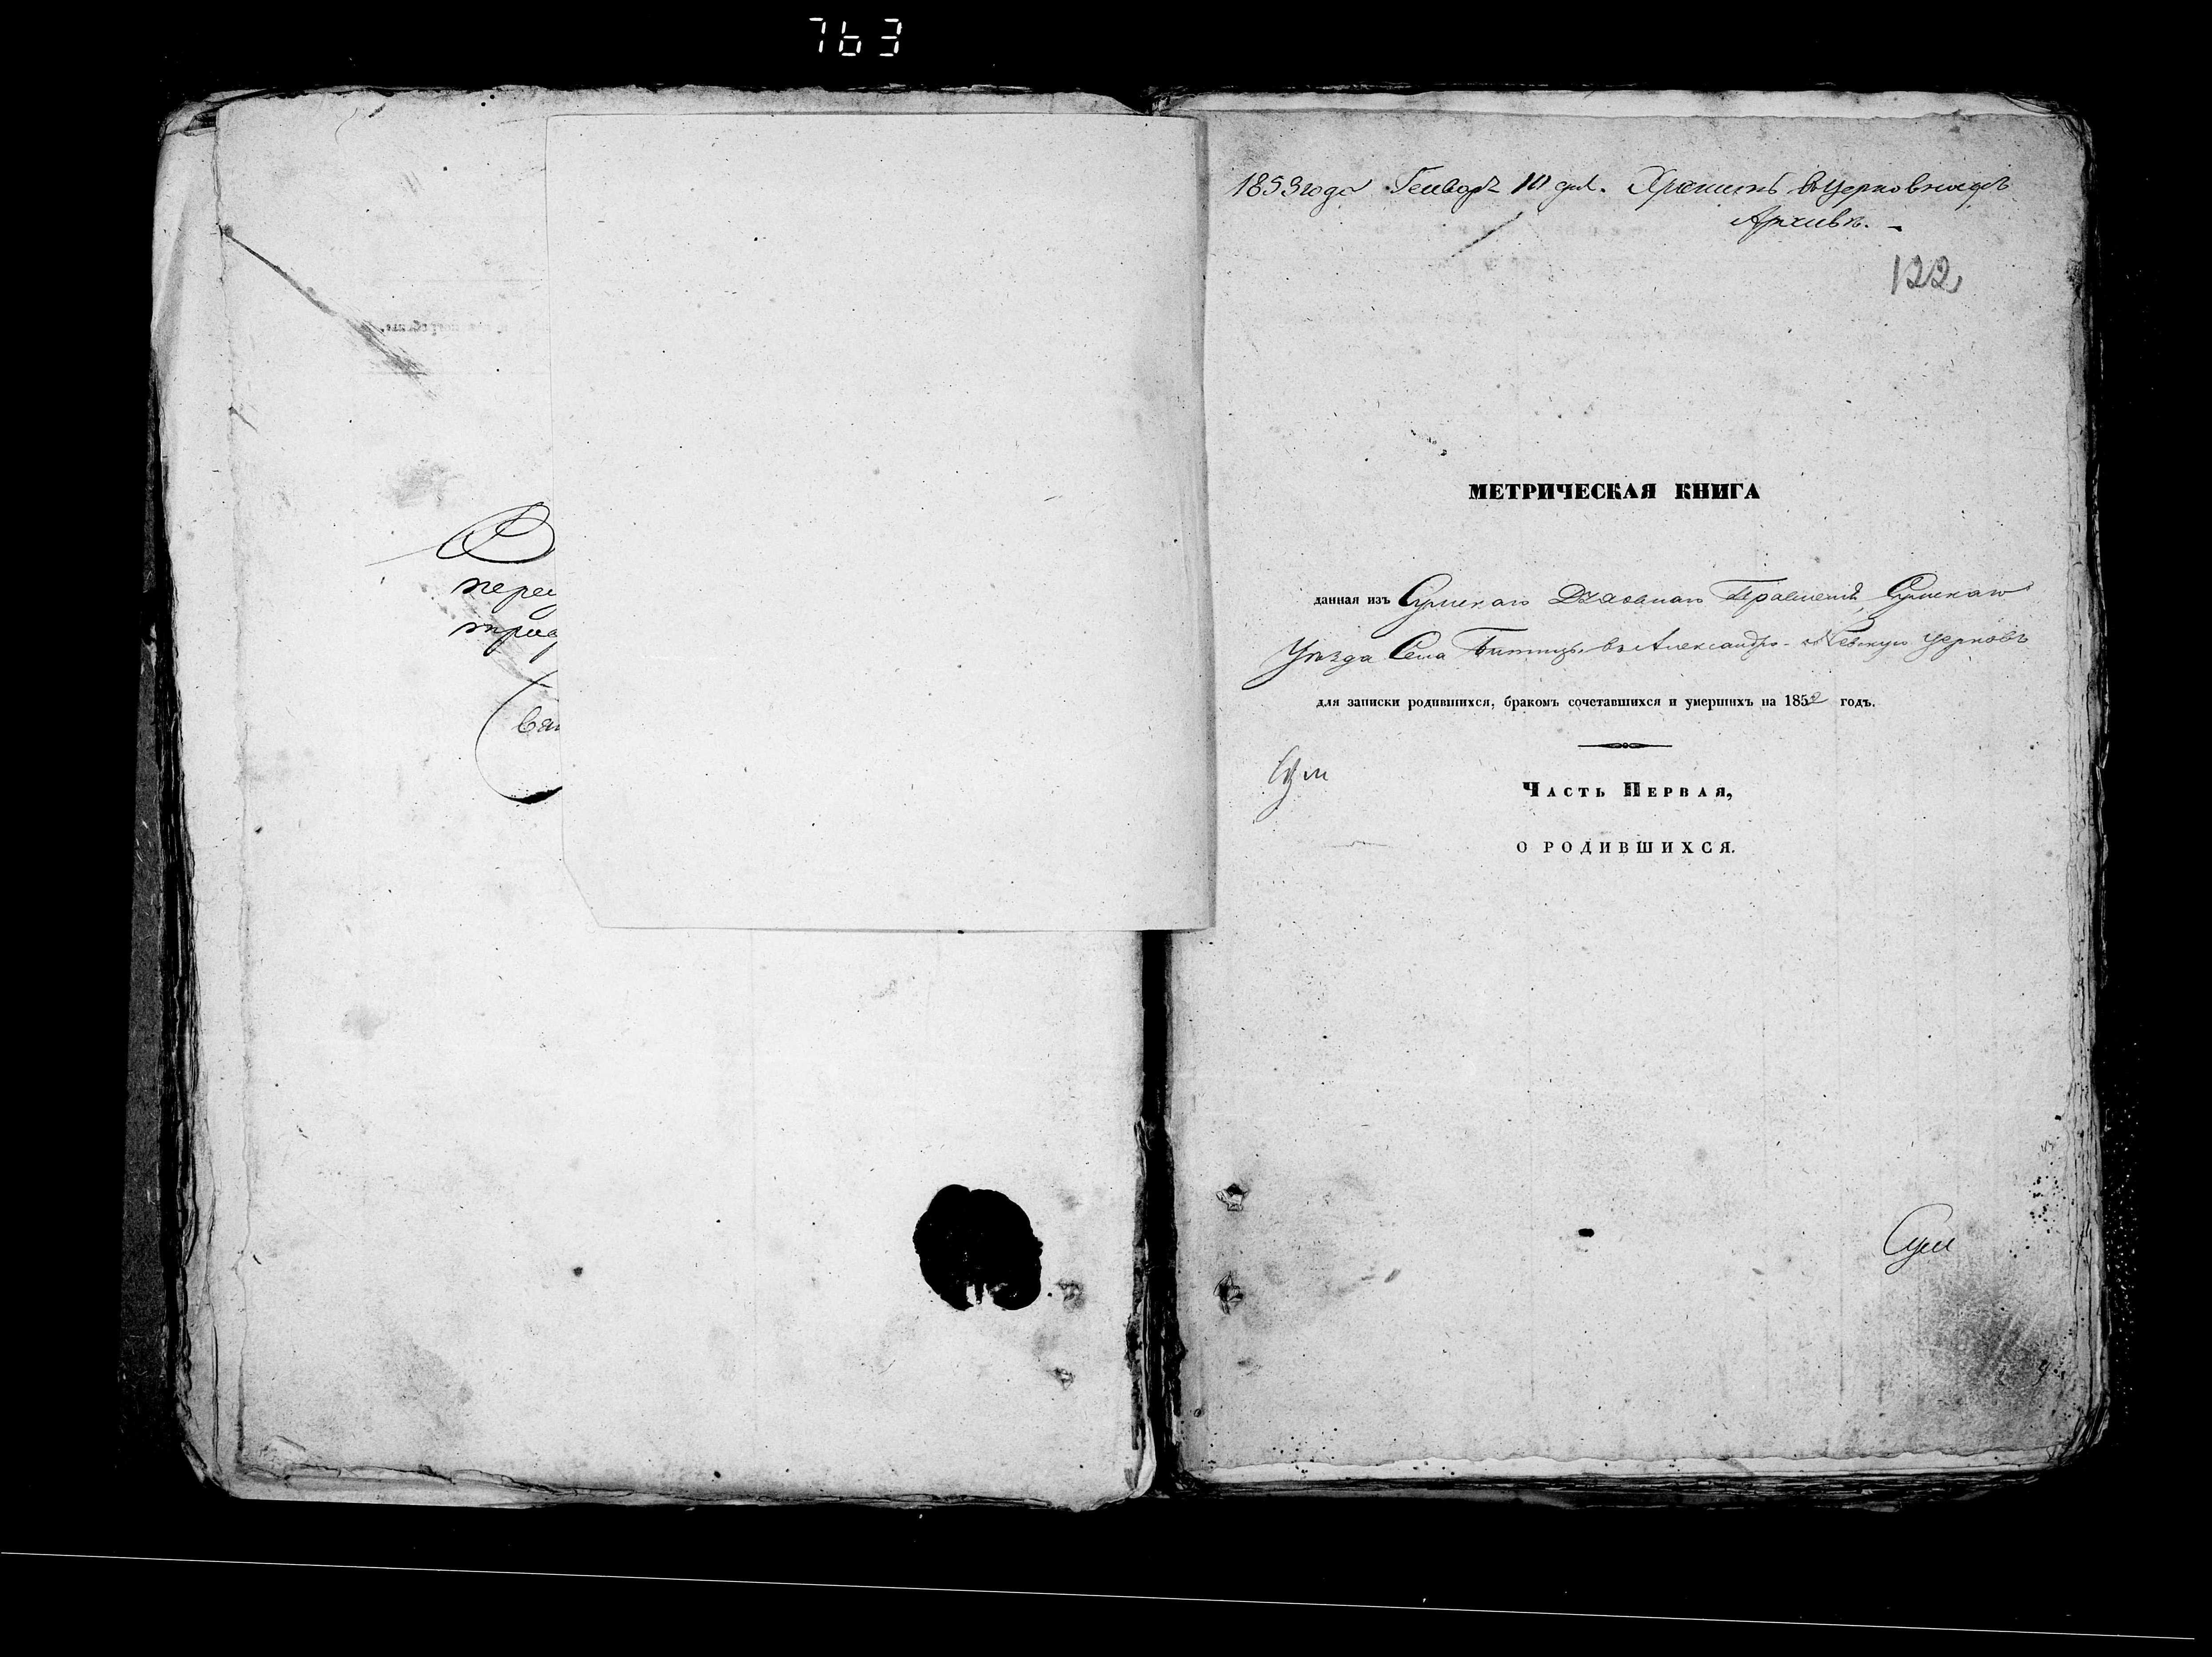 763
переу
вап
1853 года Генвар 10 дня. Хранить въ Церковномъ
Архивѣ. -
122
МЕТРИЧЕСКАЯ КНИГА
данная изъ Сумскаго Духовнаго Правленія, Сумскаго
Уѣзда Села Битицы въ Александро-Невскую церковь
для записки родившихся, бракомъ сочетавшихся и умершихъ на 1852 годъ.
Сум
ЧАСТЬ ПЕРВАЯ,
О РОДИВШИХСЯ.
Сум